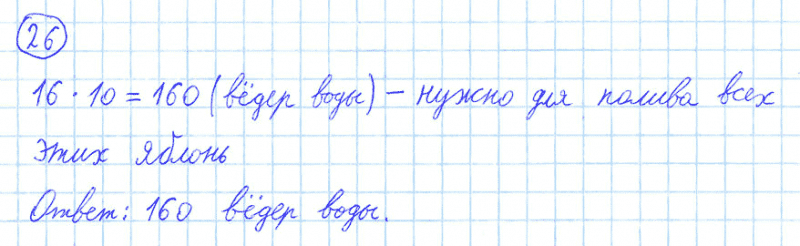 26
16 · 10 = 160 (вёдер воды) – нужно для полива всех
этих яблонь
Ответ: 160 вёдер воды.